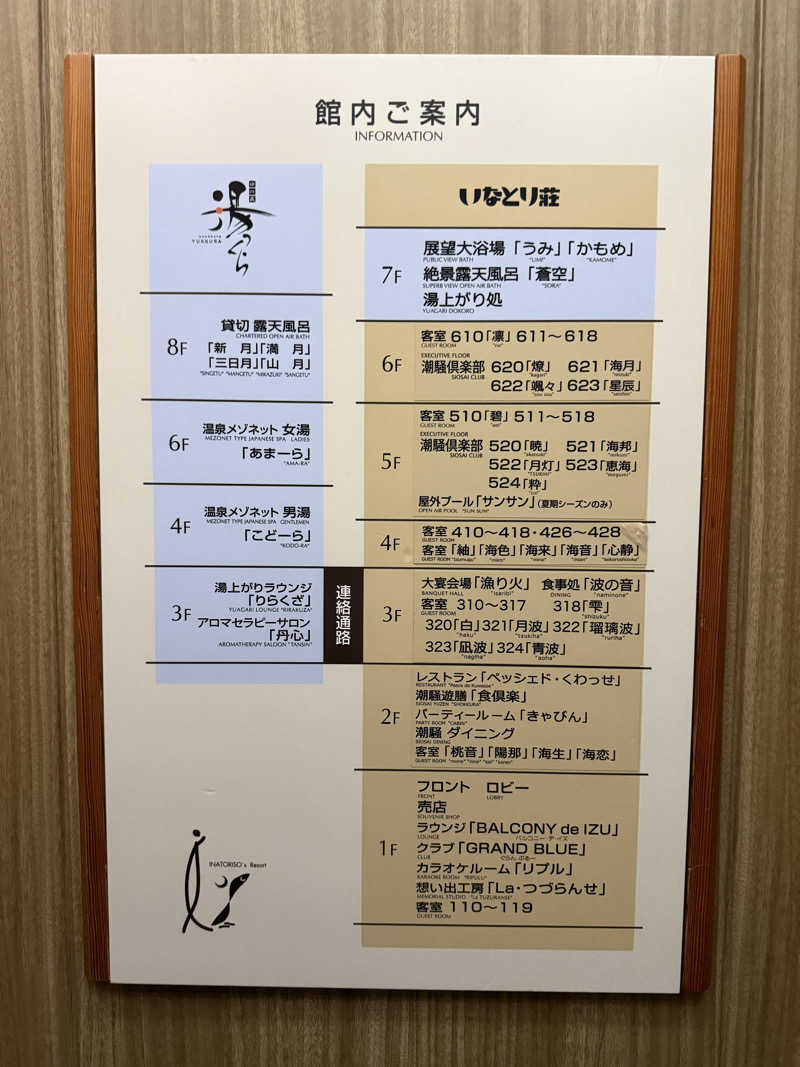 館内ご案内
INFORMATION
湯っくら
YUKKURA
8F
貸切 露天風呂
CHARTERED OPEN AIR BATH
「新 月」「満 月」
「三日月」「山 月」
"SINGETU" "MANGETU" "MIKAZUKI" "SANGETU"
6F
温泉メゾネット 女湯
MEZONET TYPE JAPANESE SPA LADIES
「あまーら」
"AMA-RA"
4F
温泉メゾネット 男湯
MEZONET TYPE JAPANESE SPA GENTLEMEN
「こどーら」
"KODO-RA"
3F
湯上がりラウンジ
「りらくざ」
YUAGARI LOUNGE "RIRAKUZA"
アロマセラピーサロン
「丹心」
AROMATHERAPY SALOON "TANSIN"
連絡通路
いなとり荘
7F
展望大浴場「うみ」「かもめ」
PUBLIC VIEW BATH "UMI" "KAMOME"
絶景露天風呂「蒼空」
SUPERB VIEW OPEN AIR BATH "SORA"
湯上がり処
YUAGARI DOKORO
6F
客室 610「凛」611～618
GUEST ROOM "rin"
EXECUTIVE FLOOR
潮騒倶楽部 620「燎」 621「海月」
SIOSAI CLUB "kagari" "mizuki"
622「颯々」623「星辰」
"sou sou" "seishin"
5F
客室 510「碧」511～518
GUEST ROOM "aoi"
EXECUTIVE FLOOR
潮騒倶楽部 520「暁」 521「海邦」
SIOSAI CLUB "akatsuki"
522「月灯」523「恵海」
"TSUKIHI" "megumi"
524「粋」
屋外プール「サンサン」(夏期シーズンのみ)
OPEN AIR POOL "SUN SUN"
4F
客室 410～418・426～428
GUEST ROOM
客室「紬」「海色」「海来」「海音」「心静」
GUEST ROOM "tsumugi" "miiro"
3F
大宴会場「漁り火」 食事処「波の音」
BANQUET HALL "isaribi" DINING "naminone"
客室 310～317 318「雫」
GUEST ROOM "shizuku"
320「白」321「月波」322「瑠璃波」
"haku" "tsukiha" "ruriha"
323「凪波」324「青波」
"nagiha" "aoha"
2F
レストラン「ペッシェド・くわっせ」
RESTAURANT
潮騒遊膳「食倶楽」
SIOSAI YUZEN "SHOKKURA"
パーティールーム「きゃびん」
PARTY ROOM "CABIN"
潮騒 ダイニング
SIOSAI DINING
客室「桃音」「陽那」「海生」「海恋」
GUEST ROOM "mone" "hina" "kai" "karen"
1F
フロント ロビー
FRONT LOBBY
売店
SOUVENIR SHOP
ラウンジ「BALCONY de IZU」
LOUNGE バルコニー デ イズ
クラブ「GRAND BLUE」
CLUB ぐらん ぶるー
カラオケルーム「リプル」
KARAOKE ROOM "RIPULU"
想い出工房「La・つづらんせ」
MEMORIAL STUDIO "La TUZURANSE"
客室 110～119
GUEST ROOM
INATORISO's Resort